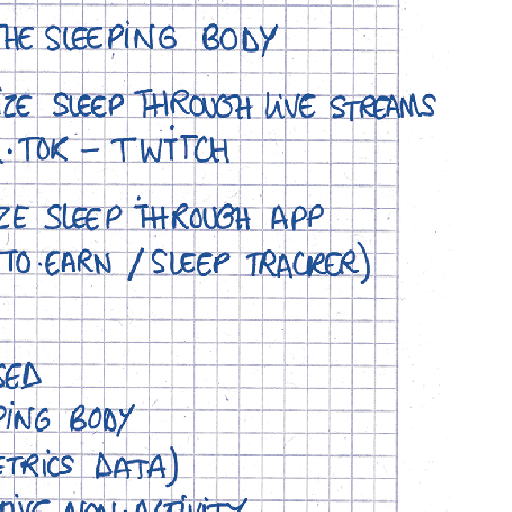 THE SLEEPING BODY
IZE SLEEP THROUGH LIVE STREAMS
·TOK – TWITCH
ZE SLEEP THROUGH APP
TO·EARN / SLEEP TRACKER)
SED
PING BODY
ETRICS DATA)
NON-ACTIVITY